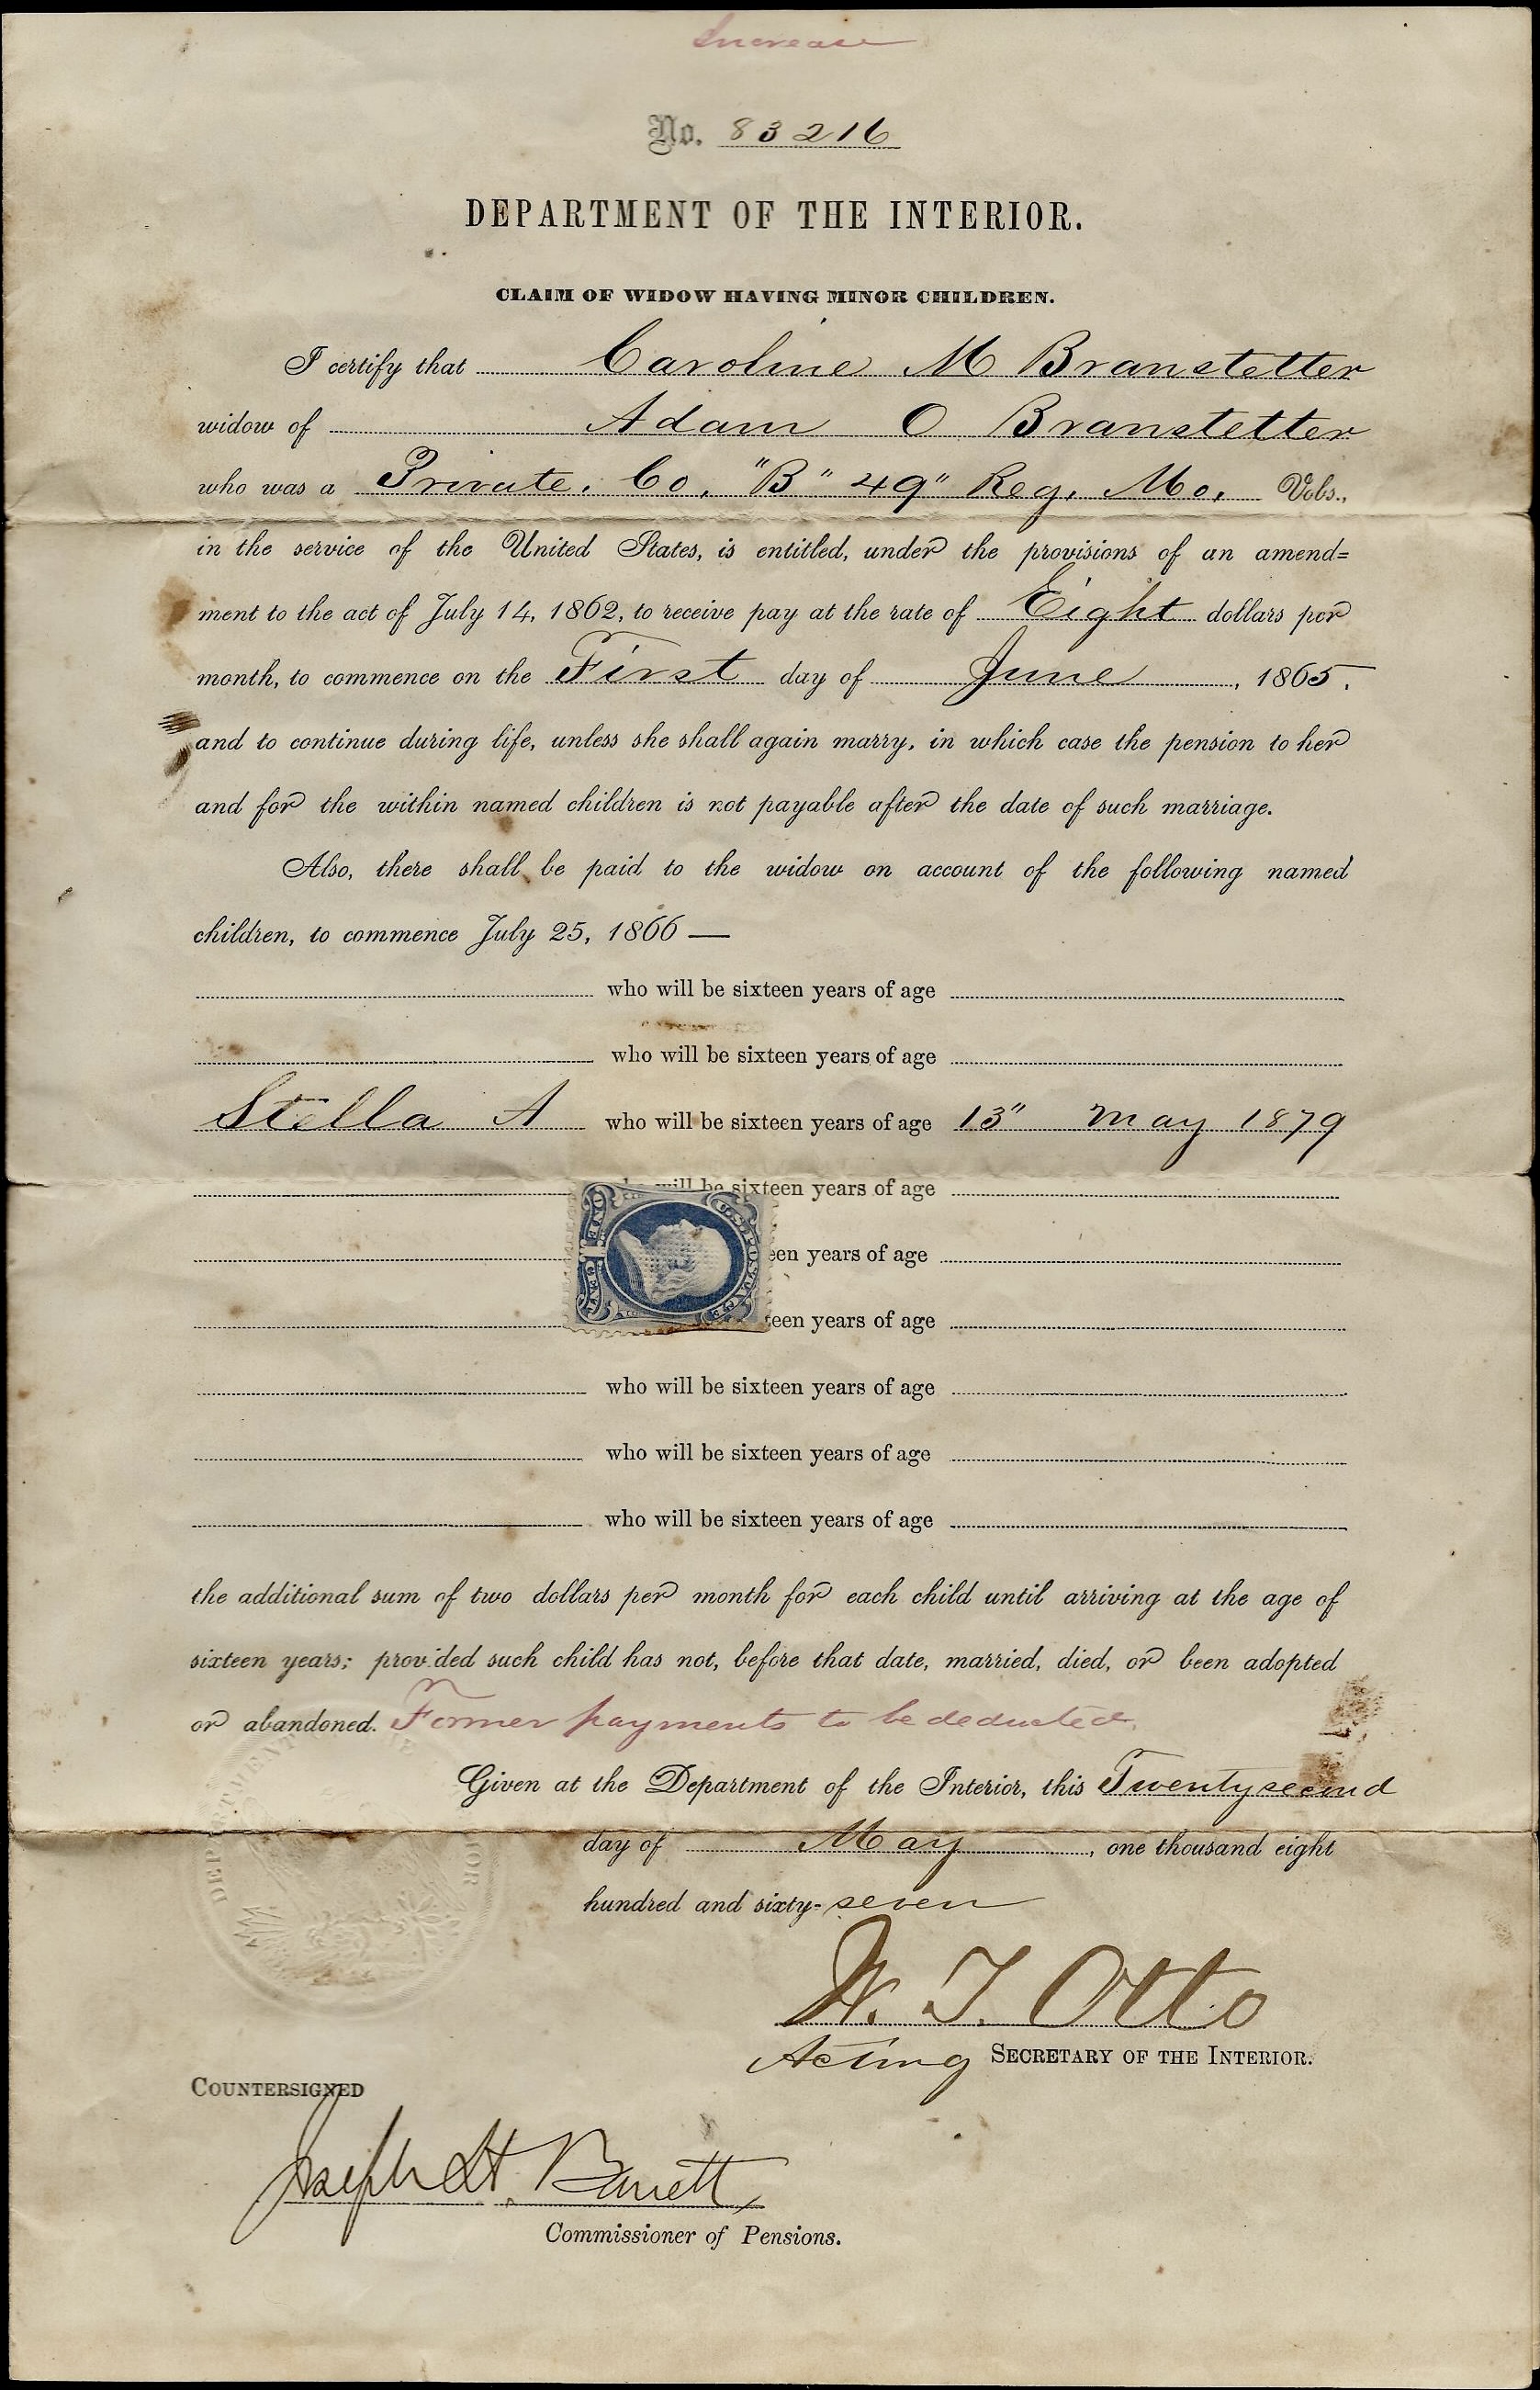 Increase
No. 83216
DEPARTMENT OF THE INTERIOR.
CLAIM OF WIDOW HAVING MINOR CHILDREN.
I certify that Caroline M Branstetter
widow of Adam O Branstetter
who was a Private. Co. "B" 49" Reg. Mo. Vols.,
in the service of the United States, is entitled, under the provisions of an amend=
ment to the act of July 14, 1862, to receive pay at the rate of Eight dollars per
month, to commence on the First day of June, 1865.
and to continue during life, unless she shall again marry, in which case the pension to her
and for the within named children is not payable after the date of such marriage.
Also, there shall be paid to the widow on account of the following named
children, to commence July 25, 1866 —
who will be sixteen years of age
who will be sixteen years of age
Stella A who will be sixteen years of age 13" May 1879
will be sixteen years of age
ONE CENT U.S. POSTAGE
een years of age
teen years of age
who will be sixteen years of age
who will be sixteen years of age
who will be sixteen years of age
the additional sum of two dollars per month for each child until arriving at the age of
sixteen years; provided such child has not, before that date, married, died, or been adopted
or abandoned. Former payments to be deducted.
Given at the Department of the Interior, this Twenty second
day of May, one thousand eight
hundred and sixty-seven
W. T. Otto
Acting SECRETARY OF THE INTERIOR.
COUNTERSIGNED
Joseph H. Barrett,
Commissioner of Pensions.